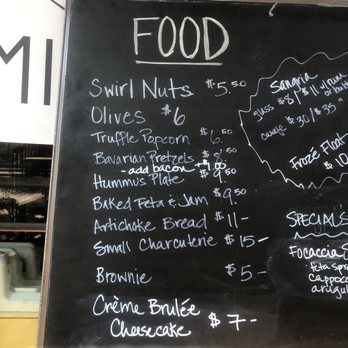 MI
FOOD
Swirl Nuts $5.50
Olives $6
Truffle Popcorn $6.50
Bavarian Pretzels $8
- add bacon
Hummus Plate $9.50
Baked Feta & Jam $9.50
Artichoke Bread $11-
Small Charcuterie $15-
Brownie $5-
Crème Brulée
Cheesecake $7-
Sangria
glass $8/$11 w/rum
carafe $30/$35
Frozé Float
$10
SPECIALS
Focaccia
feta